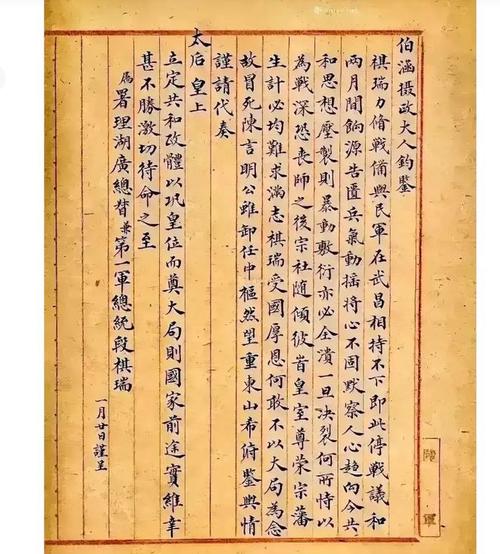 伯涵摄政大人鈞鑒
棋瑞力脩戰備與民軍在武昌相持不下即此停戰議和
兩月間餉源告匱兵氣動搖將心不固默察人心趨向今共
和思想壓製則暴動敷衍亦必全潰一旦决裂何所恃以
為戰深恐喪師之後宗社隨傾彼皆皇室尊荣宗藩
生計必均難求滿志棋瑞受國厚恩何敢不以大局為念
故冒死陳言明公雖卸任中樞然望重東山希俯鑒輿情
謹請代奏
太后皇上
立定共和政體以巩皇位而奠大局則國家前途實維幸
甚不勝激切待命之至
署理湖廣總督兼第一軍總統段棋瑞
一月廿日謹呈